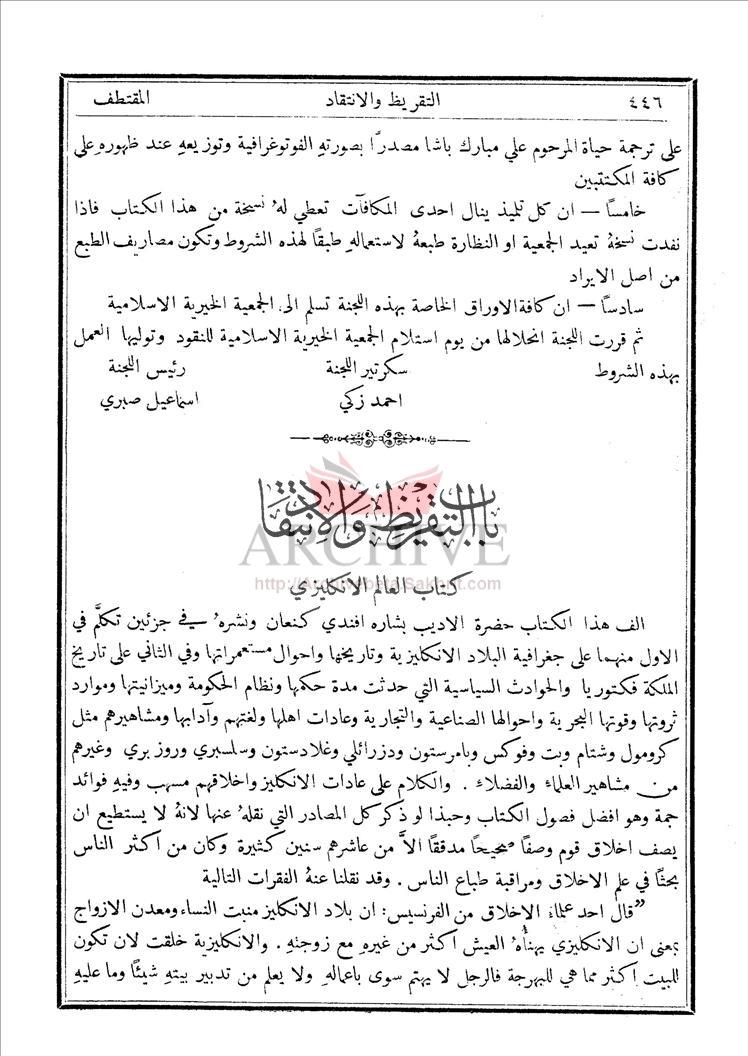 ٤٤٦ التقريظ والانتقاد المقتطف
على ترجمة حياة المرحوم علي مبارك باشا مصدرًا بصورتهِ الفوتوغرافية وتوزيعهِ عند ظهوره على
كافة المكتتبين
خامسًا — ان كل تلميذ ينال احدى المكافآت تعطي لهُ نسخة من هذا الكتاب فاذا
نفدت نسخهُ تعيد الجمعية او النظارة طبعهُ لاستعمالهِ طبقًا لهذه الشروط وتكون مصاريف الطبع
من اصل الايراد
سادسًا — ان كافة الاوراق الخاصة بهذه اللجنة تسلم الى الجمعية الخيرية الاسلامية
ثم قررت اللجنة انحلالها من يوم استلام الجمعية الخيرية الاسلامية للنقود وتوليها العمل
بهذه الشروط سكرتير اللجنة رئيس اللجنة
احمد زكي اسماعيل صبري
باب التقريظ والانتقاد
ARCHIVE
كتاب العالم الانكليزي
http://Archivebeta.Sakhrit.com
الف هذا الكتاب حضرة الاديب بشاره افندي كنعان ونشرهُ في جزئين تكلَّم في
الاول منهما على جغرافية البلاد الانكليزية وتاريخها واحوال مستعمراتها وفي الثاني على تاريخ
الملكة فكتوريا والحوادث السياسية التي حدثت مدة حكمها ونظام الحكومة وميزانيتها وموارد
ثروتها وقوتها البحرية واحوالها الصناعية والتجارية وعادات اهلها ولغتهم وآدابها ومشاهيرهم مثل
كرومول وشتام وبت وفوكس وبامرستون ودزرائلي وغلادستون وسلسبري وروزبري وغيرهم
من مشاهير العلماء والفضلاء . والكلام على عادات الانكليز واخلاقهم مسهب وفيهِ فوائد
جمة وهو افضل فصول الكتاب وحبذا لو ذكر كل المصادر التي نقلهُ عنها لانهُ لا يستطيع ان
يصف اخلاق قوم وصفًا صحيحًا مدققًا الاَّ من عاشرهم سنين كثيرة وكان من اكثر الناس
بحثًا في علم الاخلاق ومراقبة طباع الناس . وقد نقلنا عنهُ الفقرات التالية
"قال احد علماء الاخلاق من الفرنسيس: ان بلاد الانكليز منبت النساء ومعدن الازواج
بمعنى ان الانكليزي يهنأهُ العيش اكثر من غيرهِ مع زوجتهِ . والانكليزية خلقت لان تكون
للبيت اكثر مما هي للبهرجة فالرجل لا يهتم سوى باعمالهِ ولا يعلم من تدبير بيتهِ شيئًا وما عليهِ